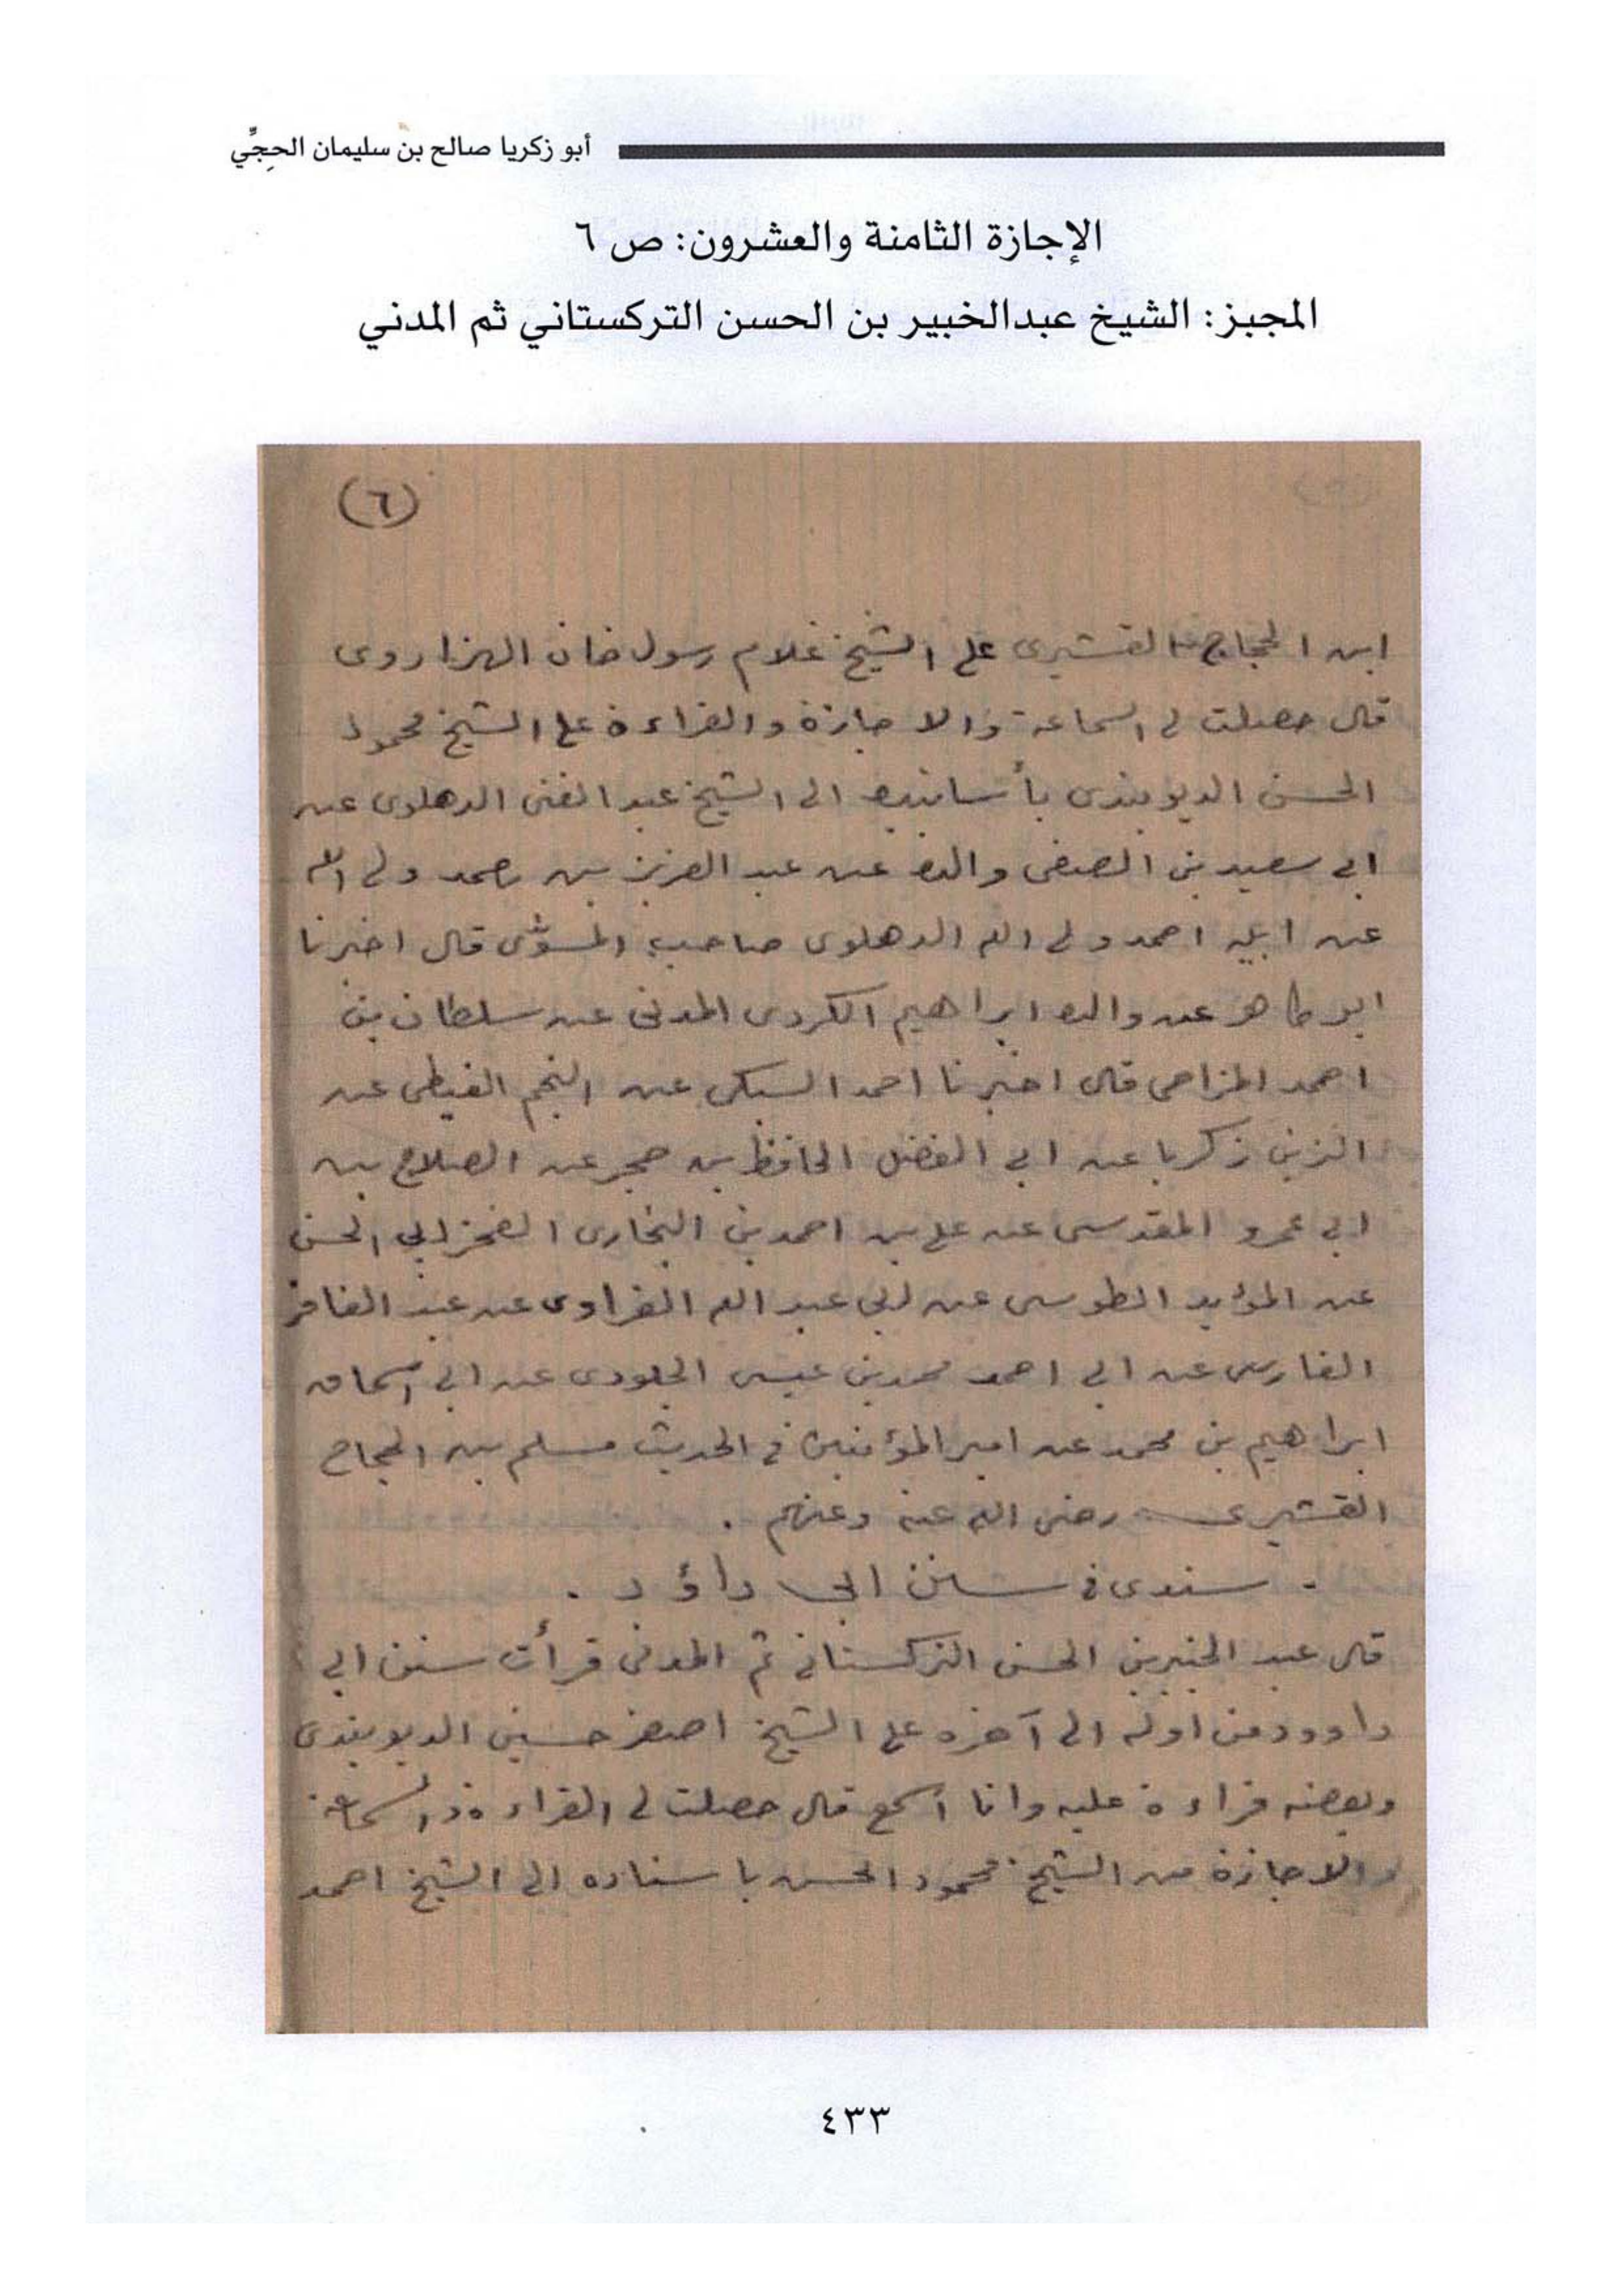 أبو زكريا صالح بن سليمان الحجِّي
الإجازة الثامنة والعشرون: ص ٦
المجيز: الشيخ عبدالخبير بن الحسن التركستاني ثم المدني
(٦)
ابن الحجاج القشيرى على الشيخ غلام رسول خان الهزاروى
قال حصلت لى السماعة والاجازة والقراءة على الشيخ محمود
الحسن الديوبندى بأسانيده الى الشيخ عبد الغنى الدهلوى عن
ابى سعيد بن الصفى والده عن عبد العزيز بن احمد ولى الله
عن ابيه احمد ولى الله الدهلوى صاحب المسوّى قال اخبرنا
ابو طاهر عن والده ابراهيم الكردى المدنى عن سلطان بن
احمد المزاحى قال اخبرنا احمد السبكى عن النجم الغيطى عن
الزين زكريا عن ابى الفضل الحافظ بن حجر عن الصلاح بن
ابى عمرو المقدسى عن على بن احمد بن البخارى الفخر ابى الحسن
عن المؤيد الطوسى عن ابى عبد الله الفراوى عن عبد الغافر
الفارسى عن ابى احمد محمد بن عيسى الجلودى عن ابى اسحاق
ابراهيم بن محمد عن امير المؤمنين فى الحديث مسلم بن الحجاج
القشيرى رضى الله عنه وعنهم .
. سندى فى سنن ابى داؤد .
قال عبد الخبير بن الحسن التركستانى ثم المدنى قرأت سنن ابى
داوود من اوله الى آخره على الشيخ اصغر حسين الديوبندى
وبعضه قراءة عليه وانا اسمع قال حصلت لى القراءة والسماعة
والاجازة من الشيخ محمود الحسن باسناده الى الشيخ احمد
٤٣٣